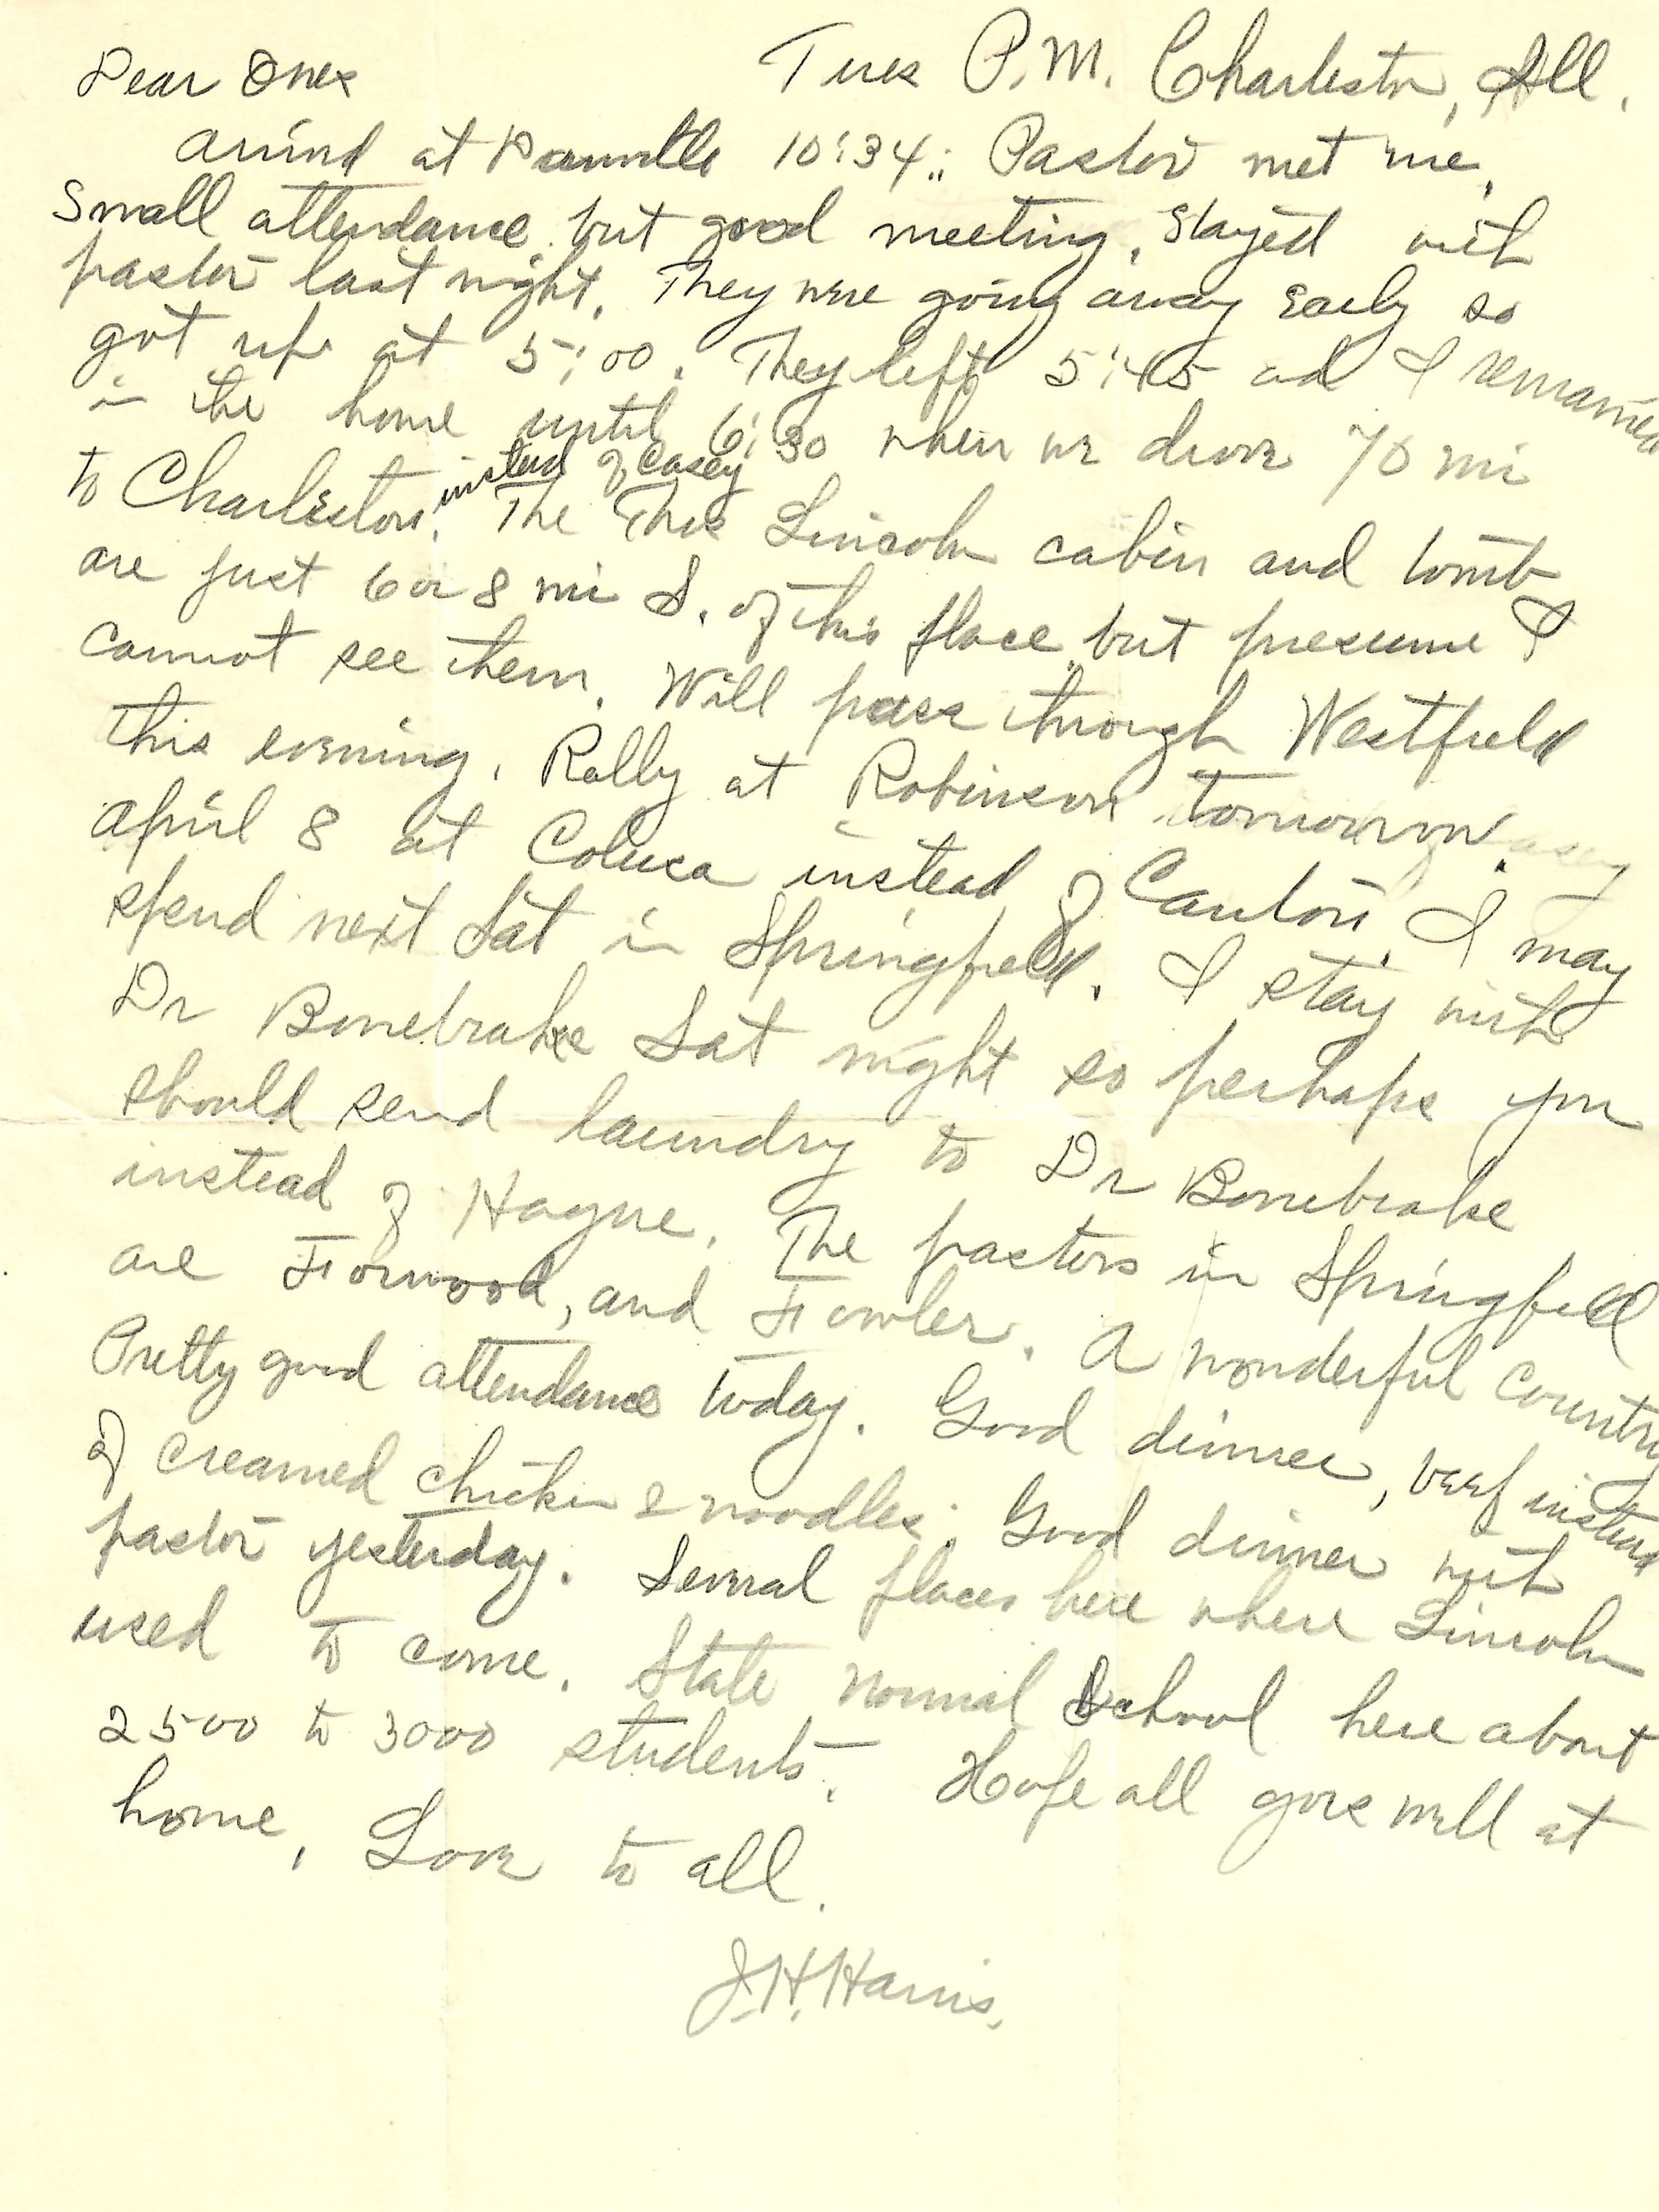 Tues P.M. Charleston, Ill.
Dear Ones
Arrived at Danville 10:34. Pastor met me.
Small attendance but good meeting. Stayed with
pastor last night. They were going away early so
got up at 5:00. They left 5:45 and I remained
in the home until 6:30 when we drove 70 mi
instead of Casey
to Charleston. The Thos Lincoln cabin and tomb
are just 6 or 8 mi S. of this place but presume I
cannot see them. Will pass through Westfield
this evening. Rally at Robinson tomorrow.
April 8 at Colusa instead of Canton. I may
spend next Sat in Springfield. I stay with
Dr Bonebrake Sat night so perhaps you
should send laundry to Dr Bonebrake
instead of Hayne. The pastors in Springfield
are Forwood, and Fowler. A wonderful country
Pretty good attendance today. Good dinner, beef instead
of creamed chicken & noodles. Good dinner with
pastor yesterday. Several places here where Lincoln
used to come. State Normal School here about
2500 to 3000 students. Hope all goes well at
home. Love to all.
J.H. Harris.